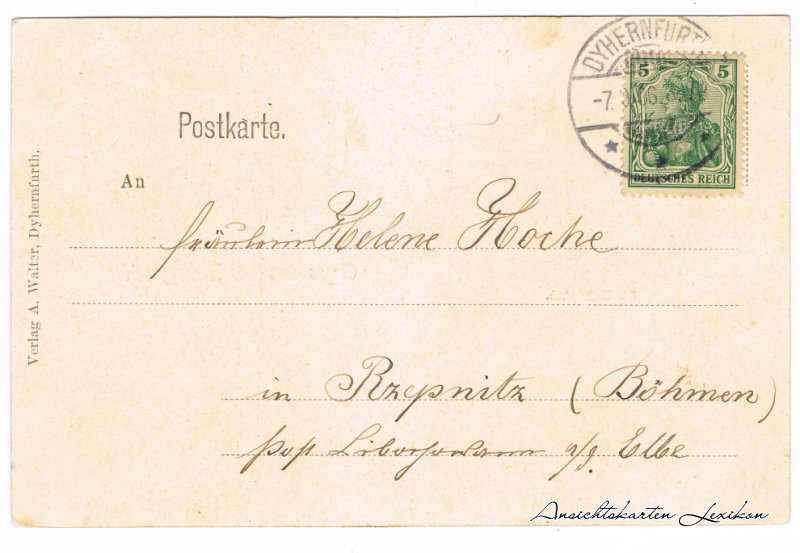 DYHERNFURTH
5 5
DEUTSCHES REICH
Postkarte.
An
Fräulein Helene Hocke
in Rzepnitz (Böhmen)
Post Libochowann a/g Elbe
Verlag A. Walter, Dyhernfurth.
Ansichtskarten Lexikon